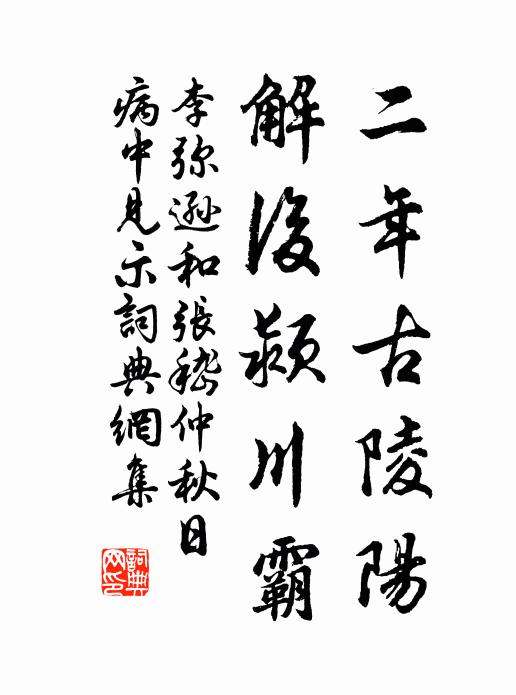 二年古陵陽
解後潁川霸
李弥遜和張嵇仲秋日
病中見示詞典網集
詞典網印